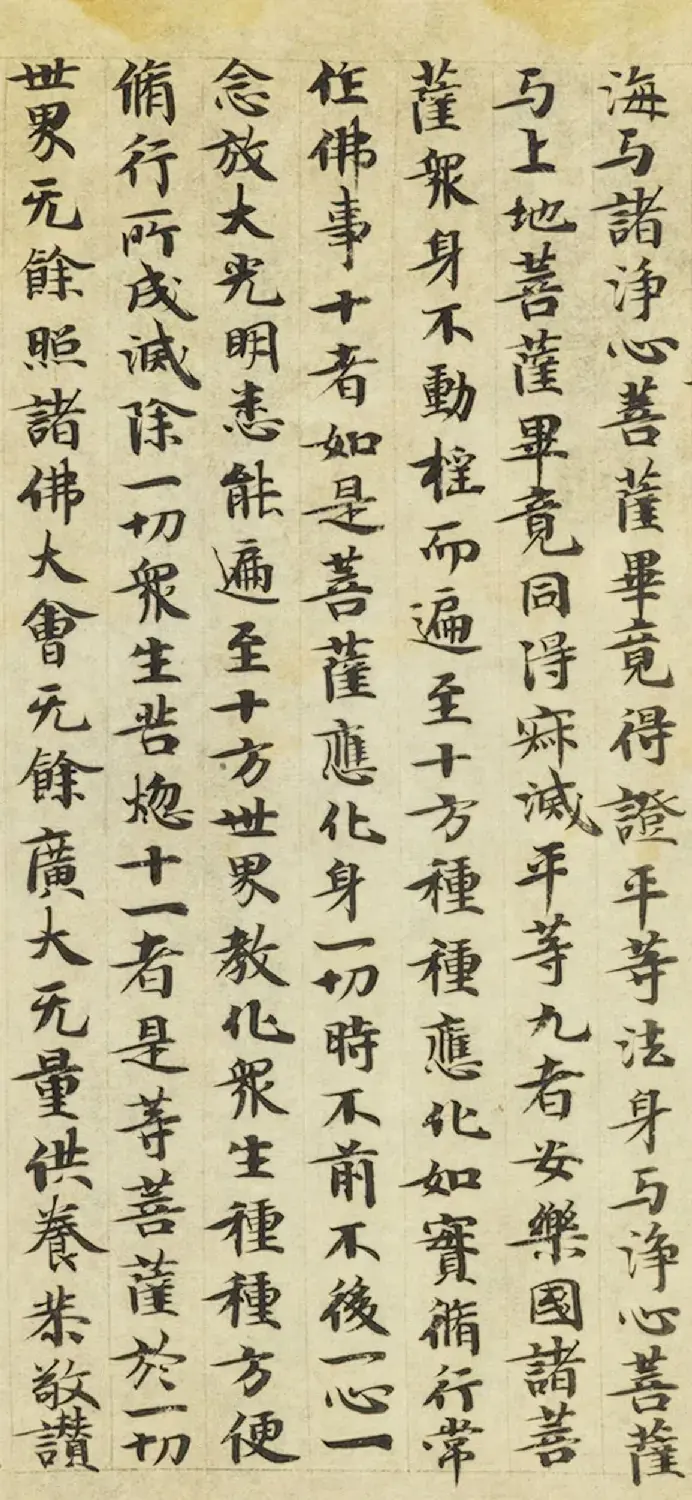 海与諸浄心菩薩畢竟得證平等法身与浄心菩薩
与上地菩薩畢竟同得寂滅平等九者安樂國諸菩
薩衆身不動揺而遍至十方種種應化如實脩行常
作佛事十者如是菩薩應化身一切時不前不後一心一
念放大光明悉能遍至十方世界教化衆生種種方便
脩行所成滅除一切衆生苦惱十一者是等菩薩於一切
世界无餘照諸佛大會无餘廣大无量供養恭敬讃